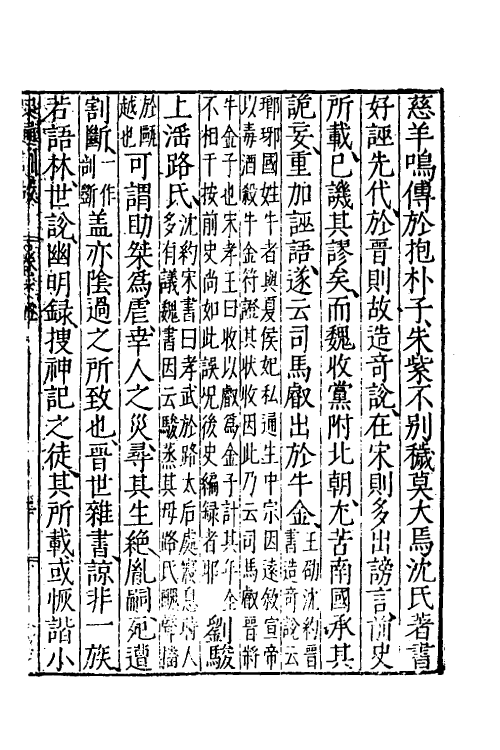 慈羊鳴傳於抱朴子朱紫不别穢莫大焉沈氏著書
好誣先代於晉則故造奇說在宋則多出謗言前史
所載已譏其謬矣而魏收黨附北朝尤苦南國承其
詭妄重加誣語遂云司馬叡出於牛金王劭沈約晉書造奇說云
瑯琊國姓牛者與夏侯妃私通生中宗因遠敘宣帝
以毒酒殺牛金符證其狀收因此乃云司馬叡晉將
牛金子也宋孝王曰收以叡爲金子計其年全
不相干按前史尚如此誤况後史編録者耶劉駿
上淫路氏沈約宋書曰孝武於路太后處寢息時人
多有議魏書因云駿烝其母路氏醜聲播
於甌越也可謂助桀爲虐幸人之災尋其生絶胤嗣死遭
割斷一作訓斷蓋亦陰過之所致也晉世雜書諒非一族
若語林世說幽明録搜神記之徒其所載或恢諧小